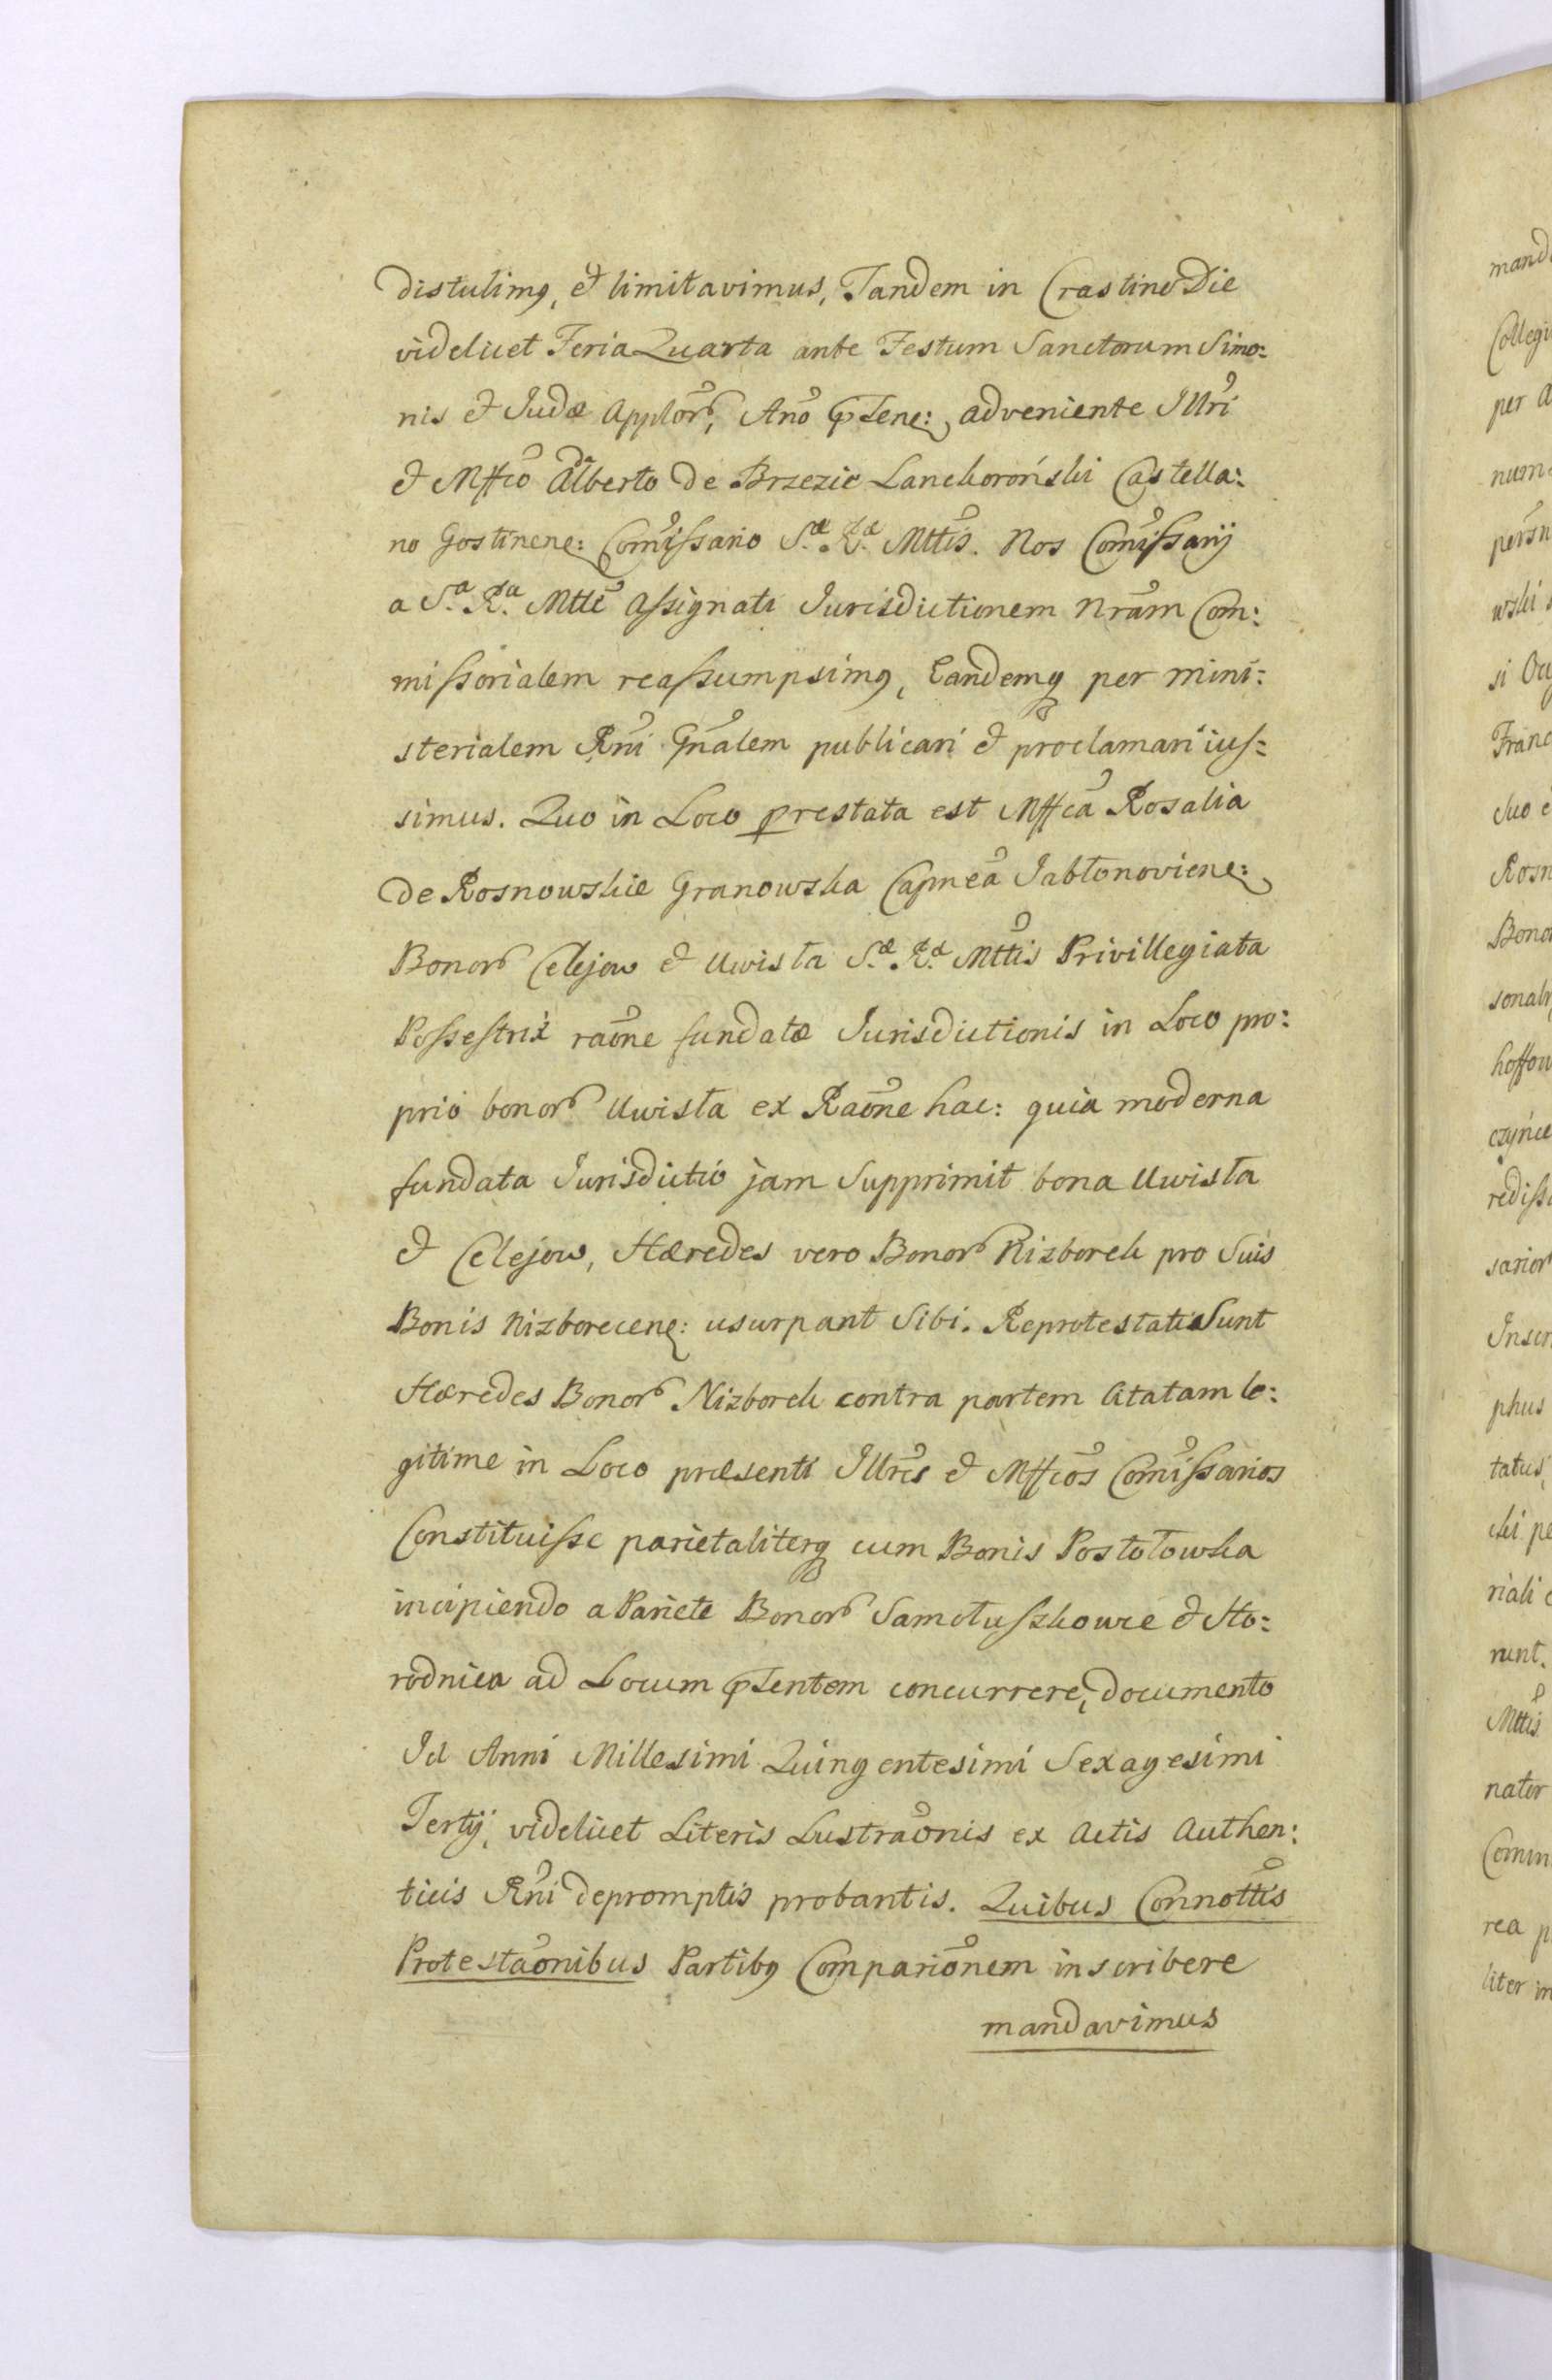 distulimq, et limitavimus, Tandem in Crastino Die
videlicet Feria Quarta ante Festum Sanctorum Simo:
nis et Judæ Applor, Ano Psene: adveniente Illri
et Mffco Alberto de Brzezie Lanckoroński Castella:
no Gostinene: Comissario S.æ R.æ Mttis. Nos Comissarij
a S.a R.a Mtte assignati Jurisdictionem Nram Com:
missorialem reassumpsimq, Eandemq per mini:
sterialem Rni Gnalem publicari et proclamari ius:
simus. Quo in Loco prestata est Mffca Rosalia
de Rosnowskie Granowska Capnea Jabłonoviene:
Bonor Celejow et Uwisła S.æ R.æ Mttis Privillegiata
Possestrix raone fundatæ Jurisdictionis in Loco pro:
prio bonor Uwisła ex Raone hac: quia moderna
fundata Jurisdictio jam Supprimit bona Uwisła
et Celejow, Hæredes vero Bonor Nizborek pro Suis
Bonis Nizborecene: usurpant Sibi. Reprotestati Sunt
Hæredes Bonor Nizborek contra partem Citatam le:
gitime in Loco præsenti Illres et Mffcos Comissarios
Constituisse parietaliterq cum Bonis Postołowka
incipiendo a Pariete Bonor Samołuszkowce et Ho:
rodnica ad Locum Psentem concurrere, documento
Id Anni Millesimi Quingentesimi Sexagesimi
Tertij, videlicet Literis Lustraonis ex Actis Authen:
ticis Rni depromptis probantis. Quibus Connottis
Protestaonibus Partibq Comparionem inscribere
mandavimus